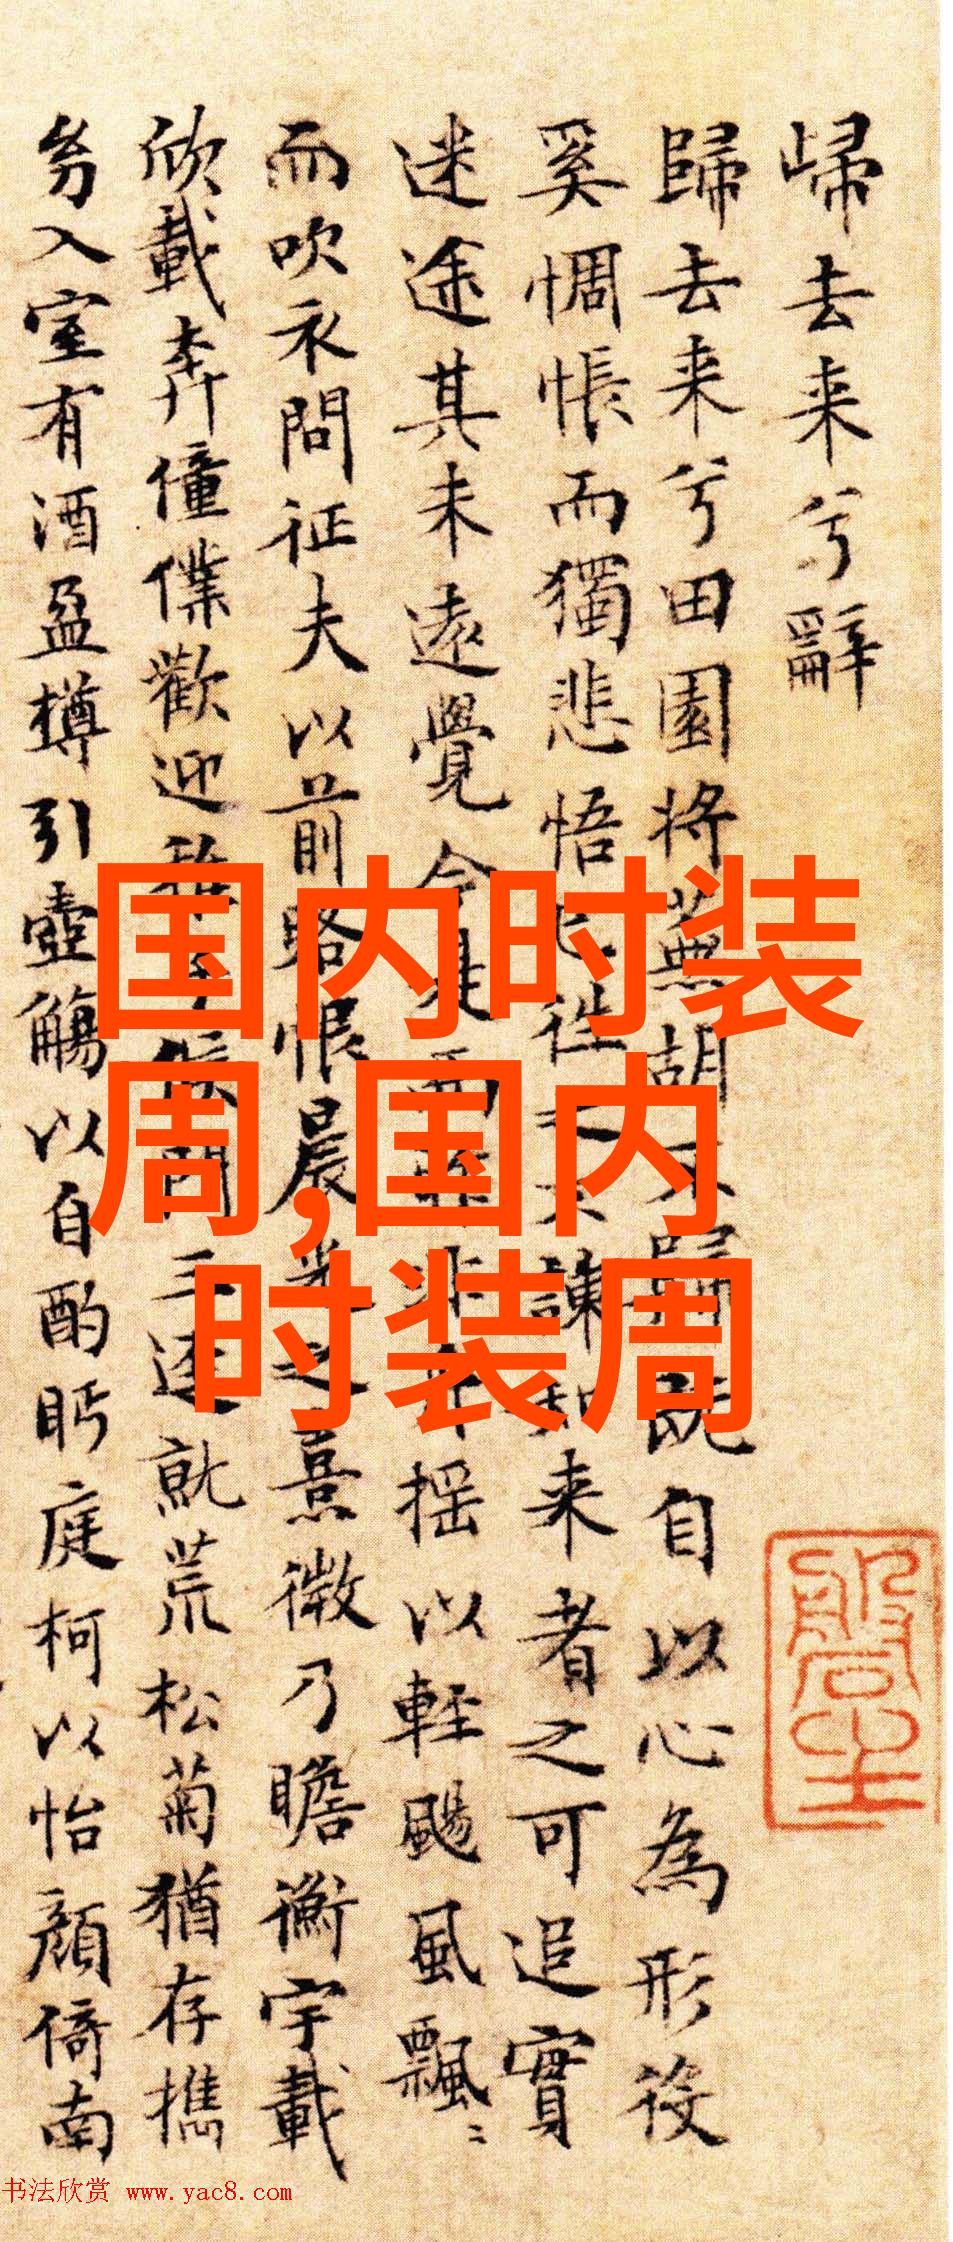 歸去来兮辭
歸去来兮田園将蕪胡不歸既自以心為形役
奚惆悵而獨悲悟已往之不諫知来者之可追實
迷途其未遠覺今是而昨非舟揺以輕颺風飄〻
而吹衣問征夫以前路恨晨光之熹微乃瞻衡宇載
欣載奔僮僕歡迎稚子候門三逕就荒松菊猶存携
幼入室有酒盈樽引壺觴以自酌眄庭柯以怡顔倚南
国内时装
周,国内
时装周
书法欣赏 www.yac8.com